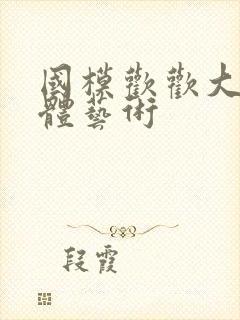 國模歡歡大
體藝術
段霞